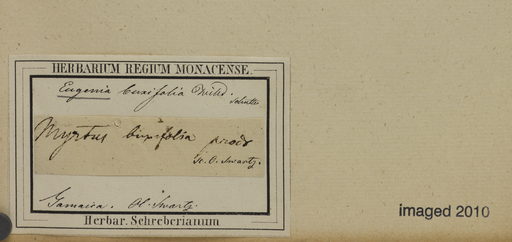 HERBARIUM REGIUM MONACENSE.
Eugenia buxifolia Willd.
Myrtus buxifolia prodr
O. Swartz.
Jamaica. Ol. Swartz.
Herbar. Schreberianum
imaged 2010